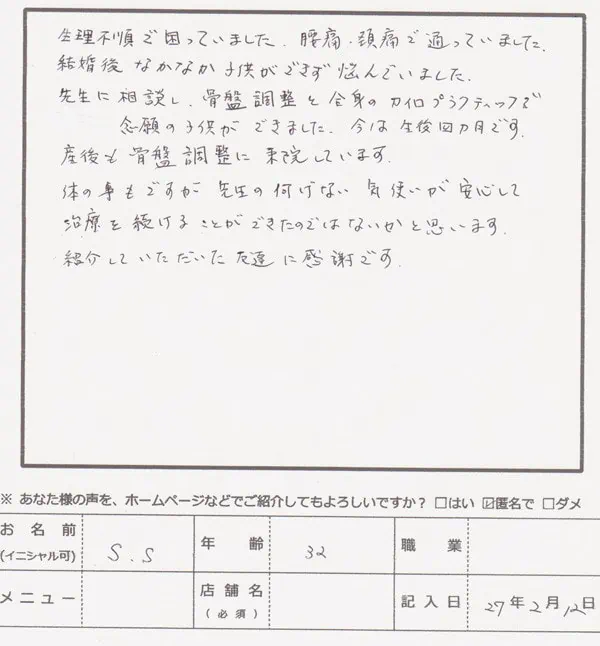 生理不順で困っていました。腰痛・頚痛で通っていました。
結婚後なかなか子供ができず悩んでいました。
先生に相談し、骨盤調整と全身のカイロプラクティックで
念願の子供ができました。今は生後四カ月です。
産後も骨盤調整に来院しています。
体の事もですが先生の何げない気使いが安心して
治療を続けることができたのではないかと思います。
紹介していただいた友達に感謝です。
※ あなた様の声を、ホームページなどでご紹介してもよろしいですか？ □はい ☑匿名で □ダメ
お名前 (イニシャル可) S.S 年齢 32 職業
メニュー 店舗名 (必須) 記入日 27年2月12日